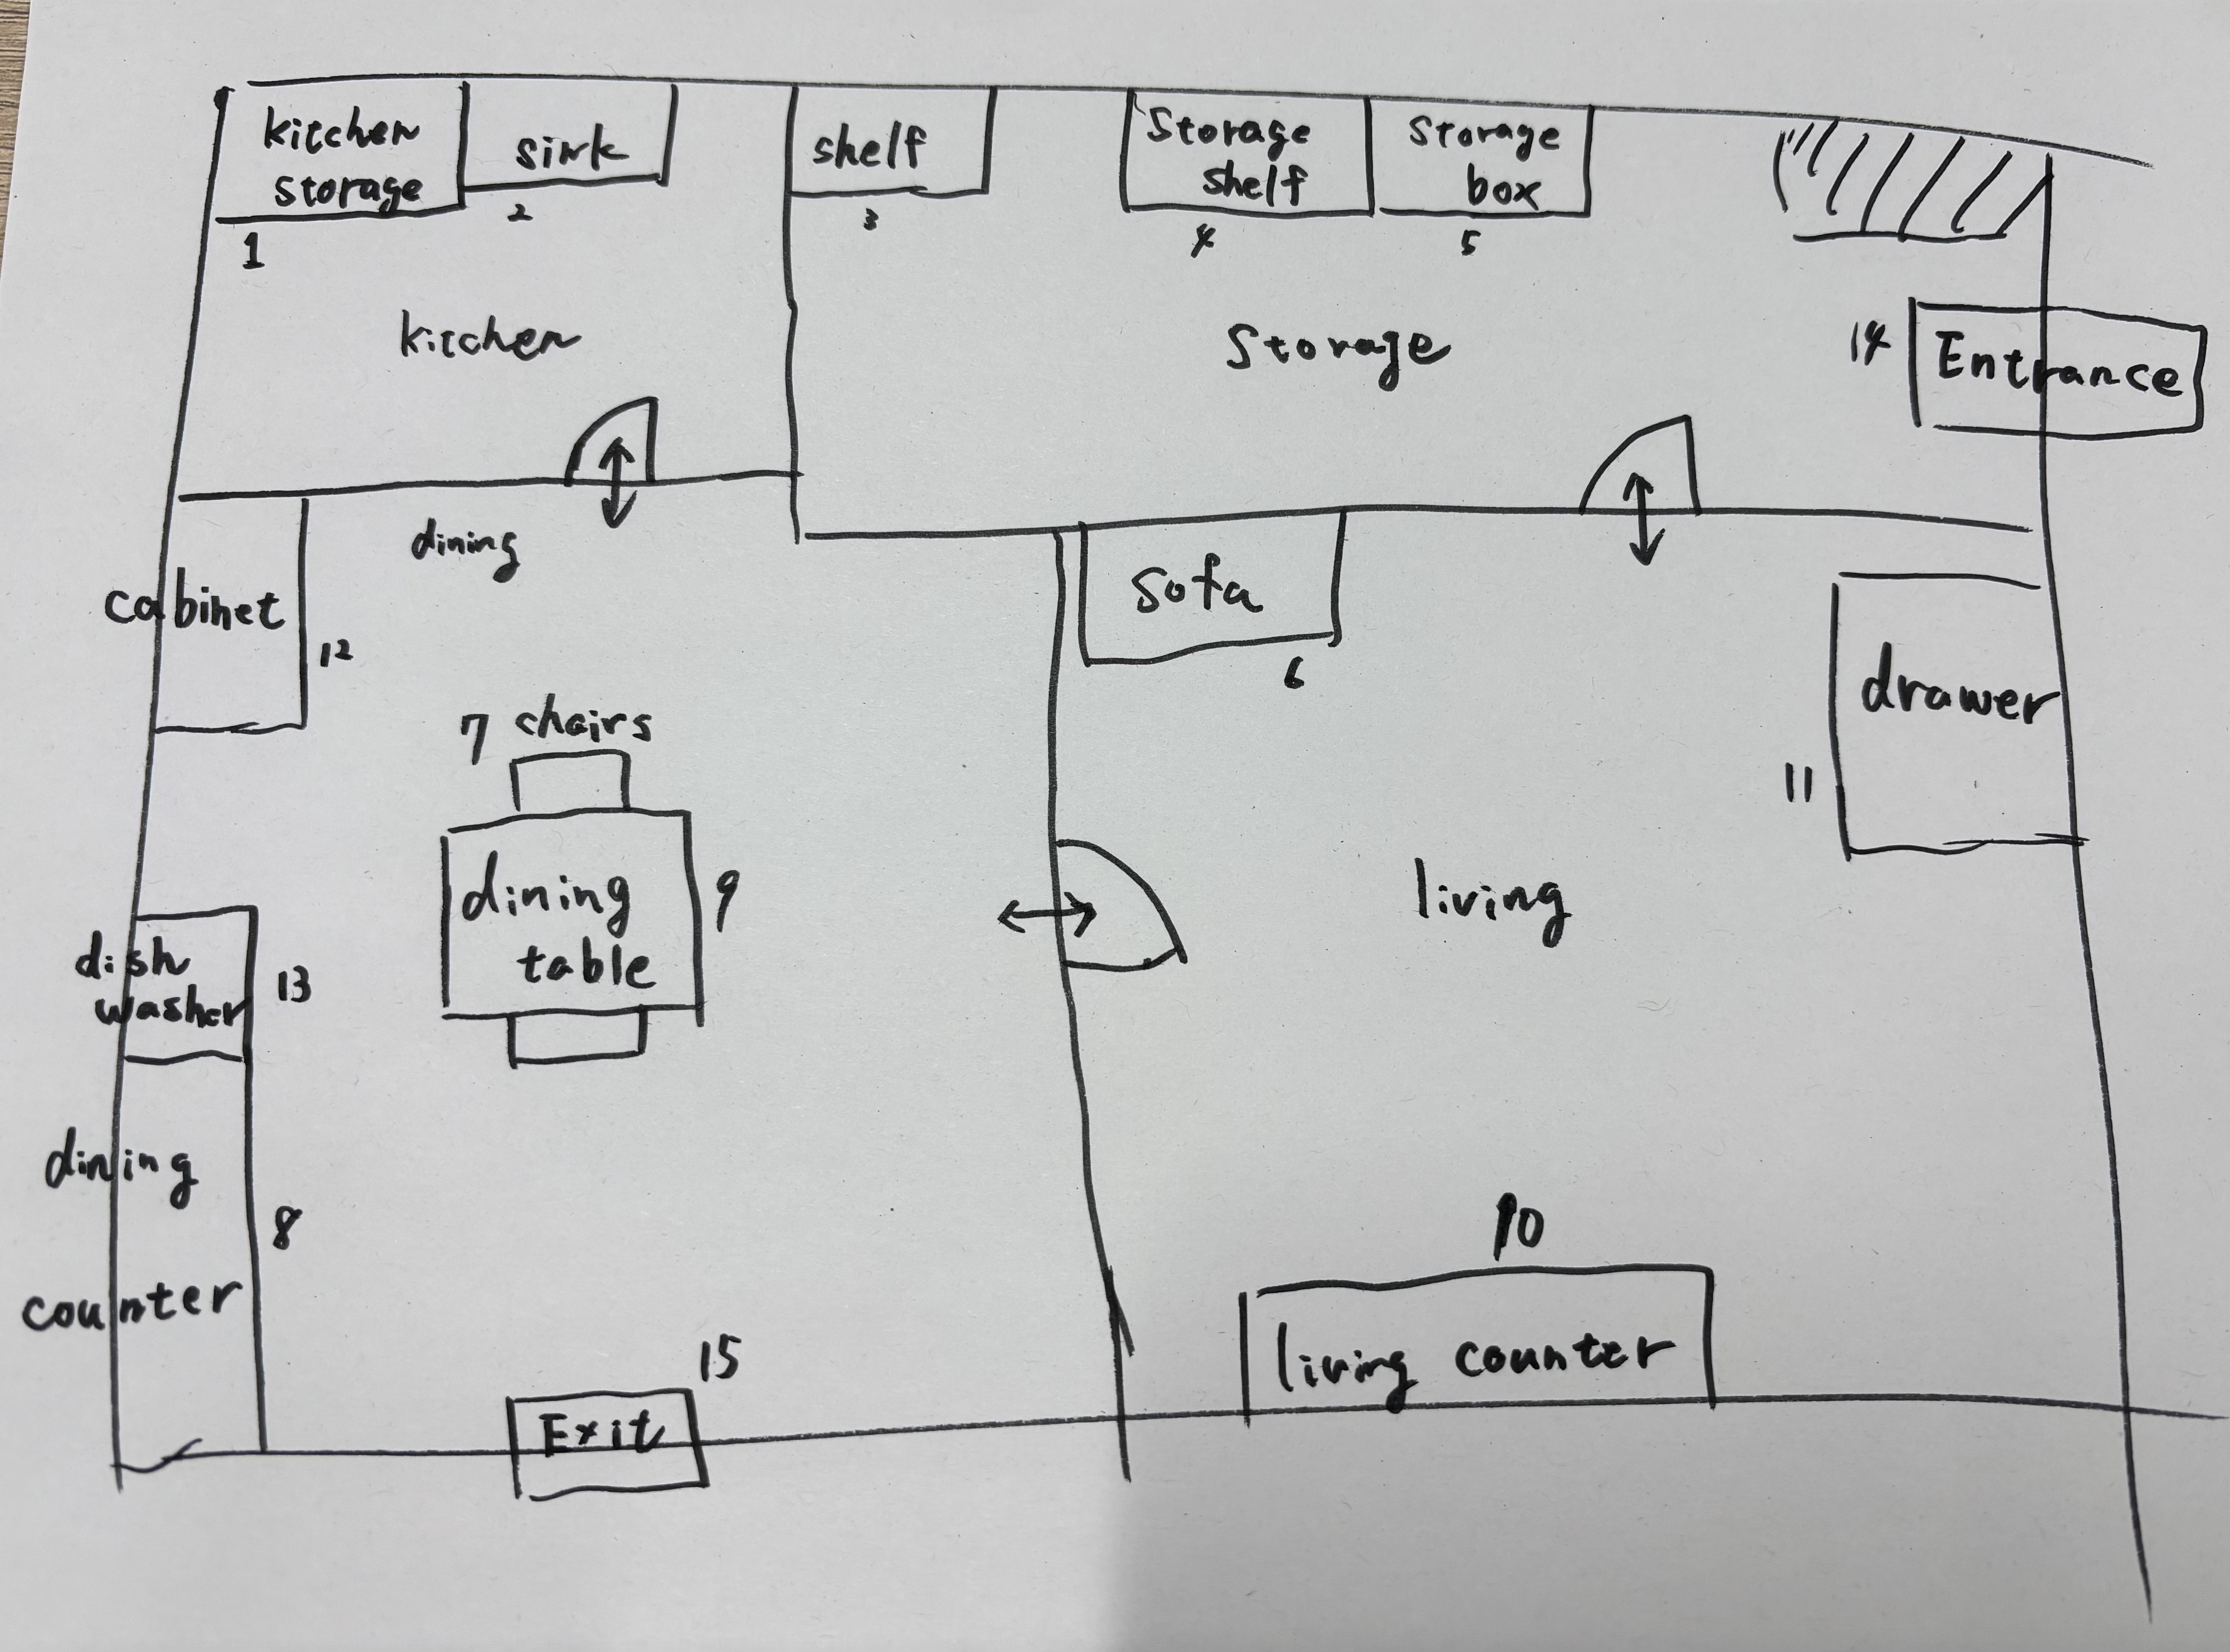 kitchen
storage
1
sink
2
shelf
3
Storage
shelf
4
Storage
box
5
kitchen
Storage
14
Entrance
dining
cabinet
12
sofa
6
drawer
11
7 chairs
dining
table
9
living
dish
washer
13
dining
counter
8
10
living counter
15
Exit